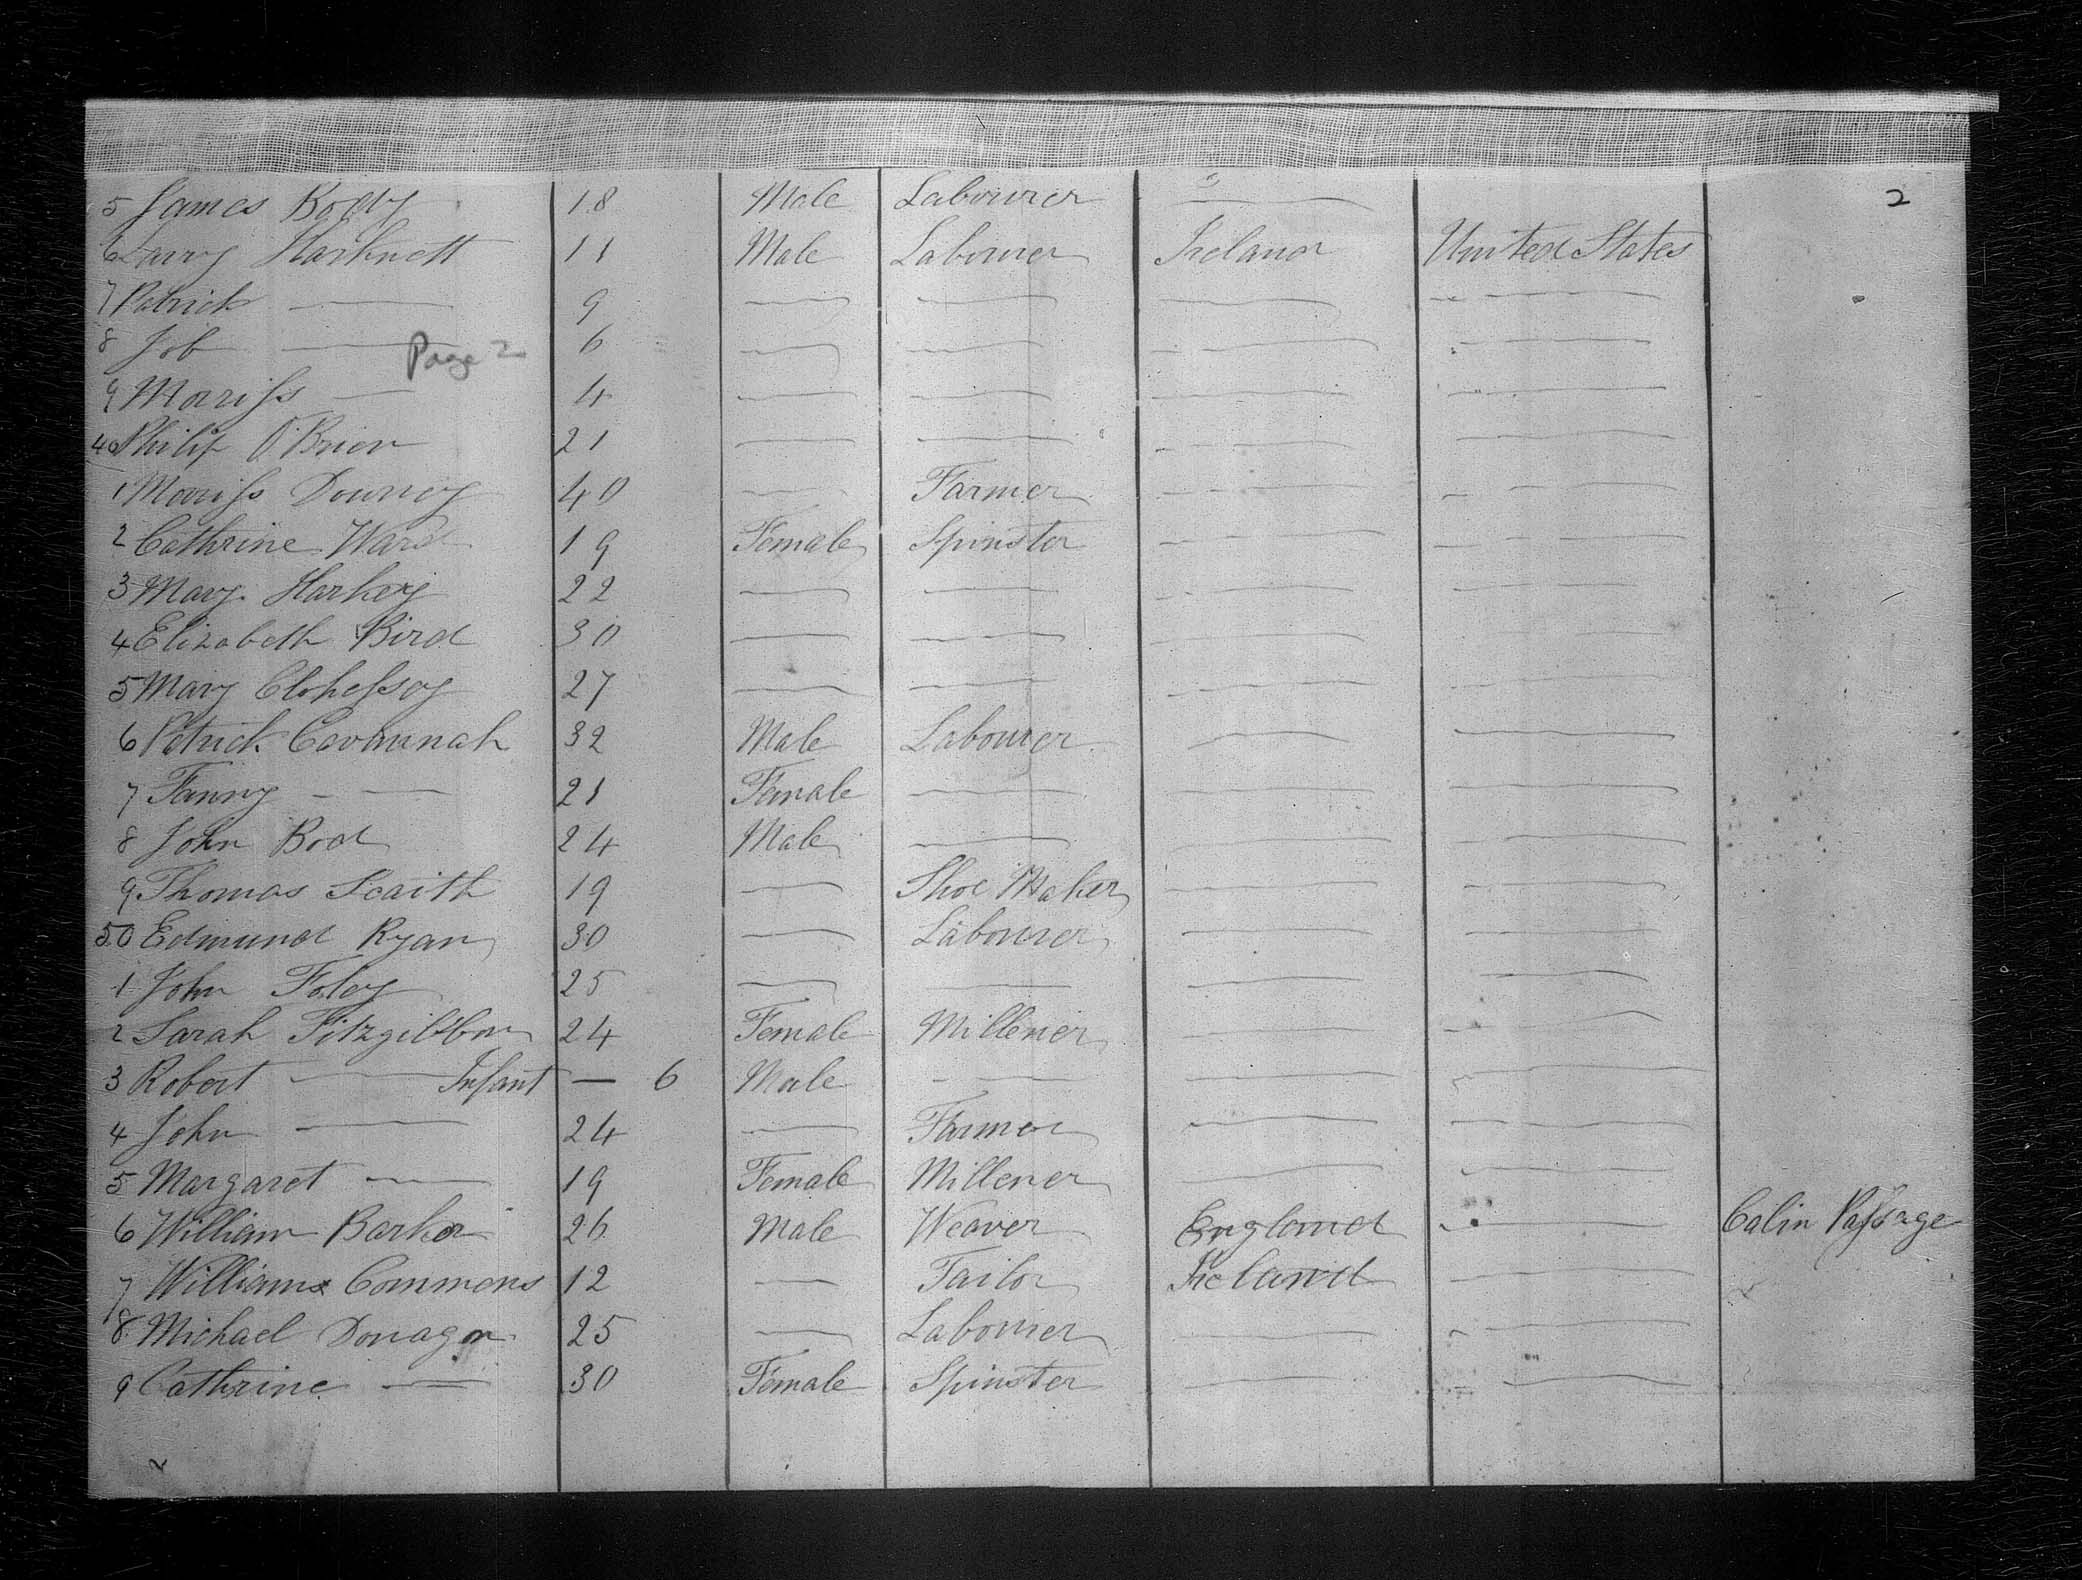 2
5 James Body 18 Male Labourer
6 Larry Harknett 11 Male Labourer Ireland United States
7 Patrick — 9 — — — —
8 Job — 6 — — — —
Page 2
9 Morriss — 4 — — — —
40 Philip O'Brien 21 — — — —
1 Morriss Downey 40 — Farmer — —
2 Cathrine Ward 19 Female Spinster — —
3 Mary Harkey 22 — — — —
4 Elizabeth Bird 30 — — — —
5 Mary Clohessey 27 — — — —
6 Patrick Cavaunah 32 Male Labourer — —
7 Fanny — 21 Female — — —
8 John Bod 24 Male — — —
9 Thomas Scaith 19 — Shoe Maker — —
50 Edmund Ryan 30 — Labourer — —
1 John Foley 25 — — — —
2 Sarah Fitzgibbon 24 Female Millener — —
3 Robert — Infant — 6 Male — — —
4 John — 24 — Farmer — —
5 Margaret — 19 Female Millener — —
6 William Barker 26 Male Weaver England — Cabin Passage
7 William Commons 12 — Tailor Ireland —
8 Michael Donagon 25 — Labourer — —
9 Cathrine — 30 Female Spinster — —